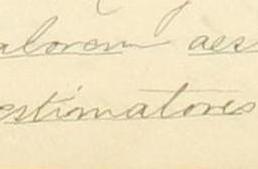 alorem aes
estimatores